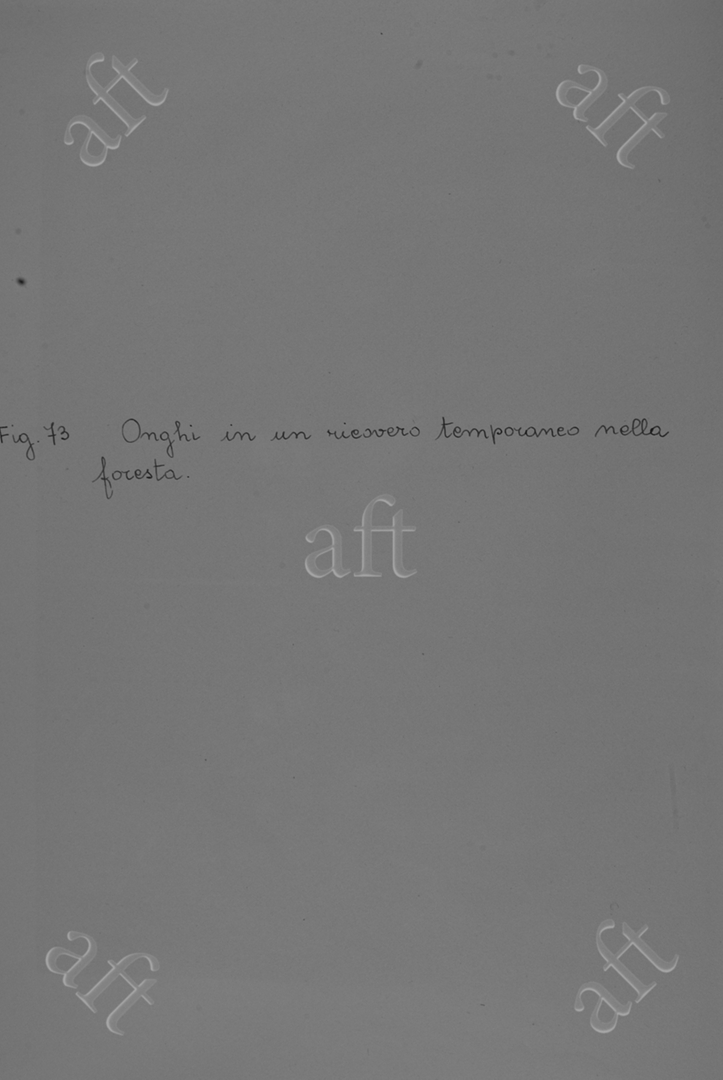 aft
aft
Fig. 73 Onghi in un ricovero temporaneo nella
foresta.
aft
aft
aft